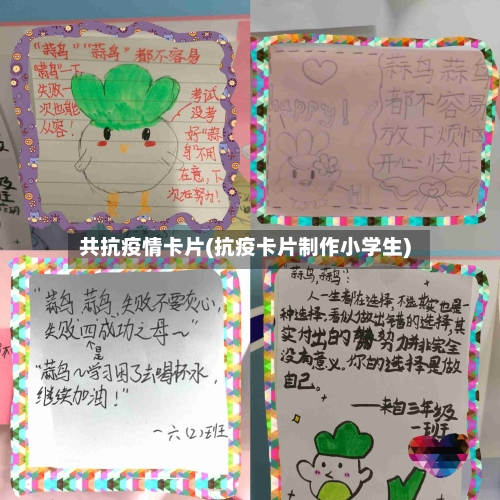 “蒜鸟”“蒜鸟”都不容易
“蒜鸟”一下
失败一
次也能
从容!
考试
没考
好“蒜
鸟”不用
在意,下
次在努力!
蒜鸟蒜鸟
都不容易
放下烦恼
开心快乐
Happy!
共抗疫情卡片(抗疫卡片制作小学生)
“蒜鸟 蒜鸟,失败不要灰心,
失败是成功之母~”
“蒜鸟~学习困了去喝杯水,
继续加油!”
一六(2)班
蒜鸟,蒜鸟:
人一生都在选择,不选其实也是一
种选择.看似做出错的选择,其
实付出的努力并非完全
没有意义.你的选择是做
自己。
——来自三年级
一班